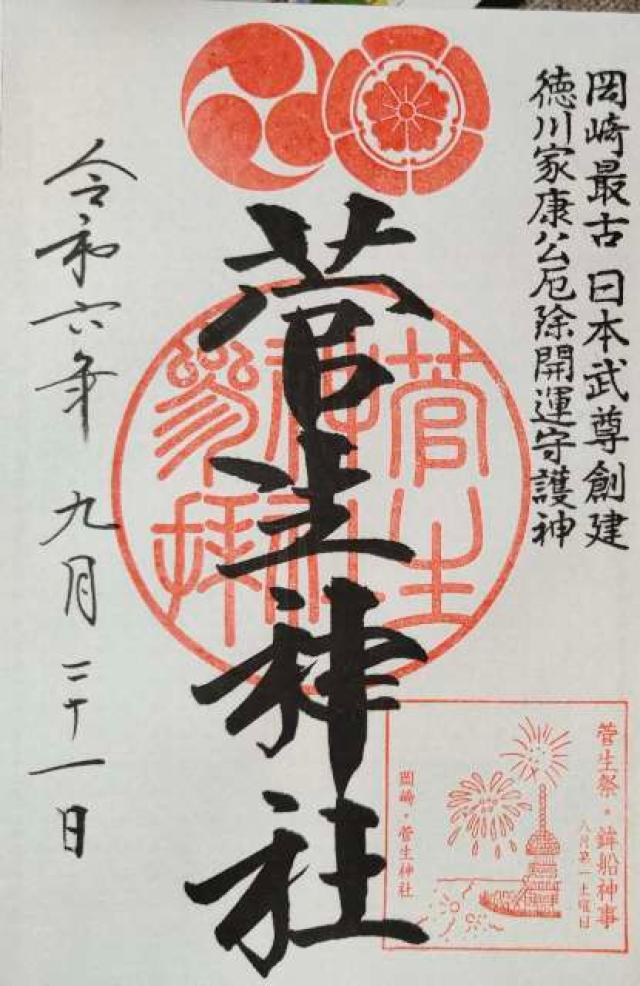 岡崎最古 日本武尊創建
徳川家康公厄除開運守護神
菅生神社
菅生
神社
参拝
令和六年 九月二十一日
菅生祭・鉾船神事
八月第一土曜日
岡崎・菅生神社